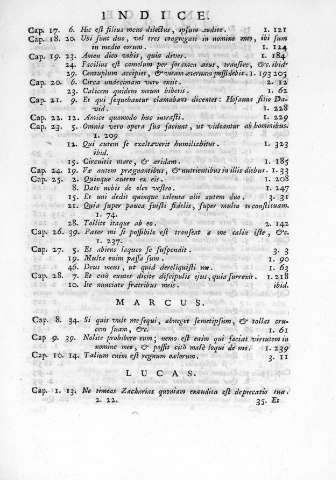 INDICE.
Cap. 17. 6. Hic est filius meus dilectus, ipsum audite. 1. 121
Cap. 18. 20. Ubi sunt duo, vel tres congregati in nomine meo, ibi sum
in medio eorum. 1. 124
Cap. 19. 23. Amen dico vobis, quia dives. 1. 184
24. Facilius est camelum per foramen acus, transire, &c. ibid.
29. Centuplum accipiet, & vitam æternam possidebit. 1. 193 205
Cap. 20. 6. Circa undecimam vero exiit. 2. 12
23. Calicem quidem meum bibetis. 1. 62
Cap. 21. 9. Et qui sequebantur clamabant dicentes: Hosanna filio Da-
vid. 1. 228
Cap. 22. 12. Amice quomodo huc intrasti. 1. 229
Cap. 23. 5. Omnia vero opera sua faciunt, ut videantur ab hominibus.
1. 209
12. Qui autem se exaltaverit humiliabitur. 1. 323
ibid.
15. Circuitis mare, & aridam. 1. 185
Cap. 24. 19. Væ autem prægnantibus, & nutrientibus in illis diebus. 1. 33
Cap. 25. 2. Quinque autem ex eis. 1. 208
8. Date nobis de oleo vestro. 1. 247
15. Et uni dedit quinque talenta alii autem duo. 3. 31
21. Quia super pauca fuisti fidelis, super multa te constituam.
1. 74.
28. Tollite itaque ab eo. 2. 142
Cap. 26. 39. Pater mi si possibile est transeat a me calix iste, &c.
1. 237.
Cap. 27. 5. Et abiens laqueo se suspendit. 3. 3
19. Multa enim passa sum. 1. 90
46. Deus meus, ut quid dereliquisti me. 1. 63
Cap. 28. 7. Et cito euntes dicite discipulis ejus, quia surrexit. 1. 218
10. Ite nunciate fratribus meis. ibid.
MARCUS.
Cap. 8. 34. Si quis vult me sequi, abneget semetipsum, & tollat cru-
cem suam, &c. 1. 61
Cap. 9. 39. Nolite prohibere eum; nemo est enim qui faciat virtutem in
nomine meo, & possit cito male loqui de me. 1. 239
Cap. 10. 14. Talium enim est regnum cælorum. 3. 11
LUCAS.
Cap. 1. 13. Ne timeas Zacharia quoniam exaudita est deprecatio tua.
2. 22. 35. Et